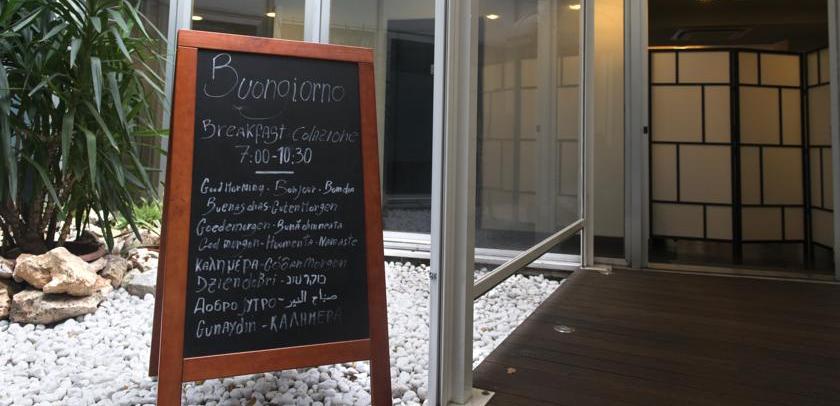 Buongiorno
Breakfast Colazione
7:00-10:30
Good Morning - Bonjour - Bom dia
Buenos dias - Guten Morgen
Goedemorgen - Bună dimineata
God morgen - Huomenta - Namaste
Καλημέρα - Godan Morgon
Dzien dobri - בוקר טוב
Добро јутро - صباح الخير
Gunaydin - ΚΑΛΗΜΕΡΑ